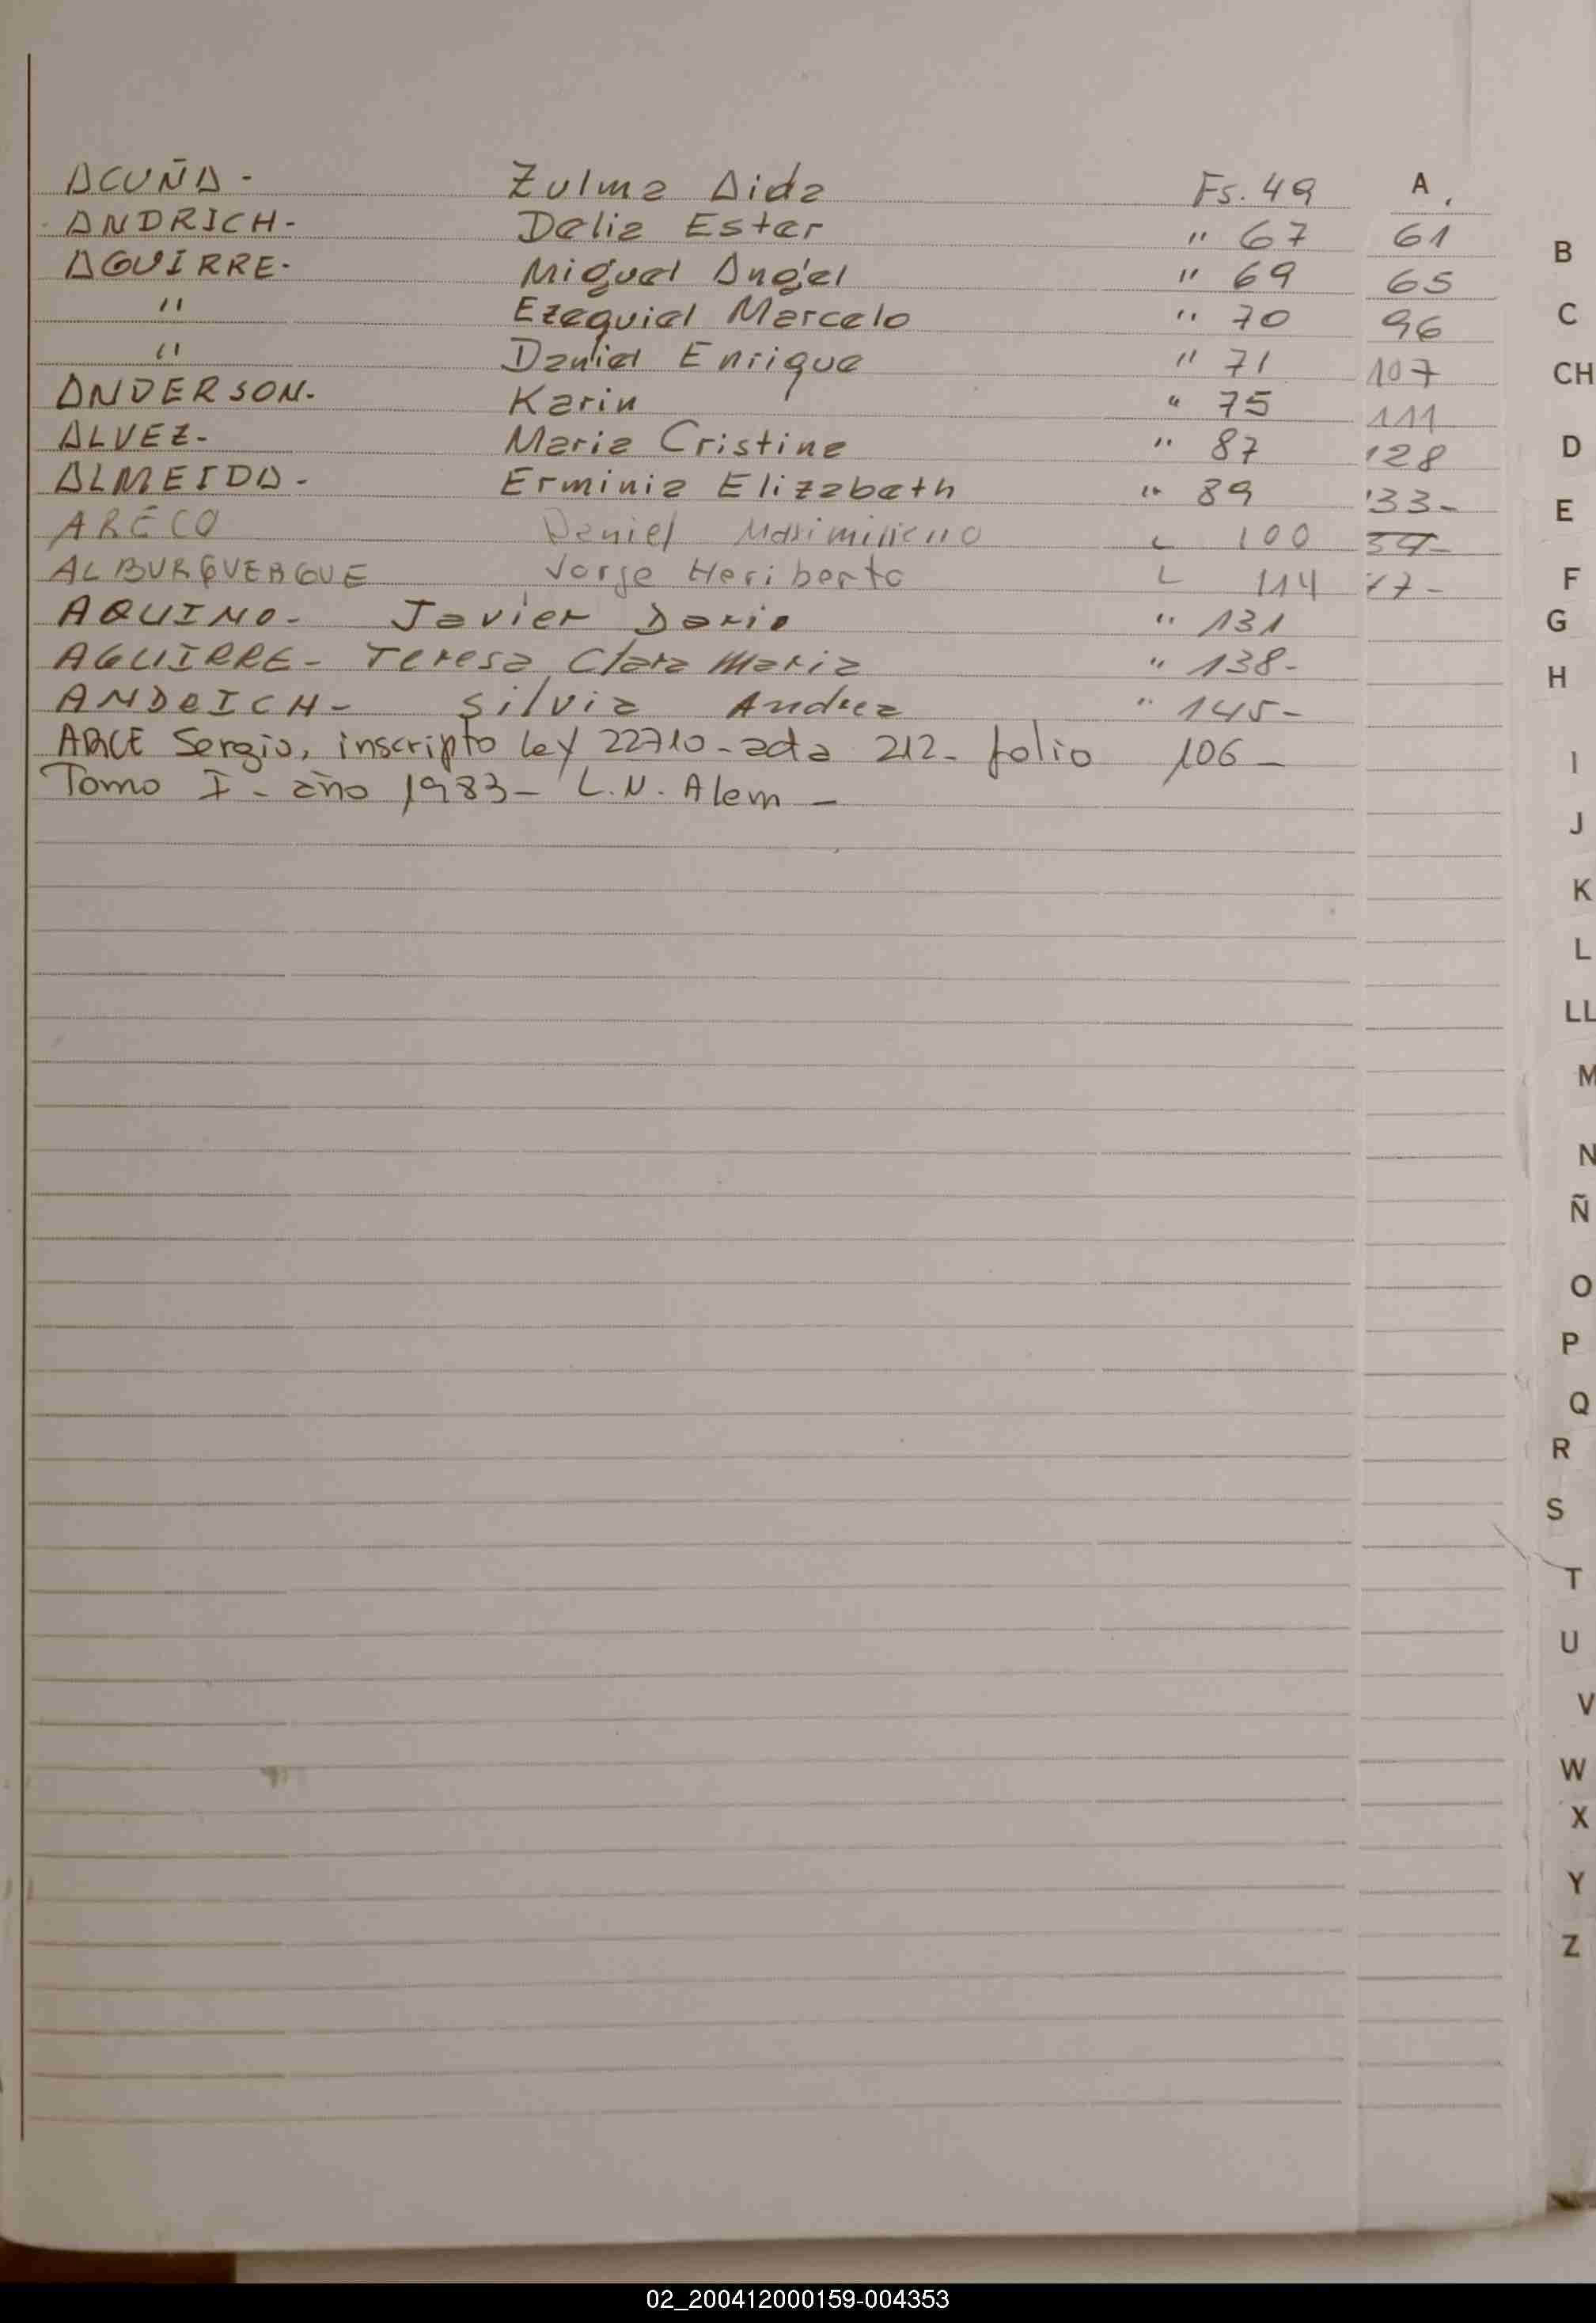 A
ACUÑA - Zulma Aida Fs. 49
ANDRICH - Delia Ester " 67 61
AGUIRRE - Miguel Angel " 69 65
" Ezequiel Marcelo " 70 96
" Daniel Enrique " 71 107
ANDERSON. Karin " 75 111
ALVEZ - Maria Cristina " 87 128
ALMEIDA - Erminia Elizabeth " 89 33-
ARECO Daniel Maximiliano 100
ALBURQUERQUE Jorge Heriberto 114 77-
AQUINO - Javier Dario " 131
AGUIRRE - Teresa Clara Maria " 138-
ANDRICH - Silvia Andrea " 145-
ARCE Sergio, inscripto ley 22710 - acta 212 - folio 106 -
Tomo I - año 1983 - L.N. Alem -
B
C
CH
D
E
F
G
H
I
J
K
L
LL
M
N
Ñ
O
P
Q
R
S
T
U
V
W
X
Y
Z
02_200412000159-004353